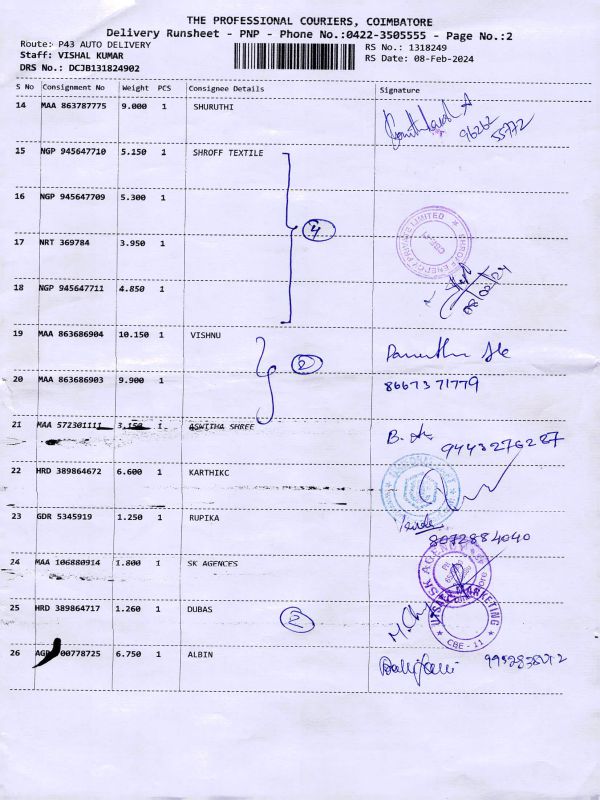 THE PROFESSIONAL COURIERS, COIMBATORE
Delivery Runsheet - PNP - Phone No.:0422-3505555 - Page No.:2
Route: P43 AUTO DELIVERY
RS No.: 1318249
Staff: VISHAL KUMAR
RS Date: 08-Feb-2024
DRS No.: DCJB131824902
S No Consignment No Weight PCS Consignee Details Signature
14 MAA 863787775 9.000 1 SHURUTHI
96262
55772
15 NGP 945647710 5.150 1 SHROFF TEXTILE
16 NGP 945647709 5.300 1
4
17 NRT 369784 3.950 1
18 NGP 945647711 4.850 1
08/02/24
19 MAA 863686904 10.150 1 VISHNU
2
20 MAA 863686903 9.900 1
8667371779
21 MAA 572301111 3.150 1 ASWITHA SHREE
22 HRD 389864672 6.600 1 KARTHIKC
23 GDR 5345919 1.250 1 RUPIKA
8072884040
24 MAA 106880914 1.800 1 SK AGENCES
SK AGENCY
25 HRD 389864717 1.260 1 DUBAS
2
MARKETING
CBE - 11
26 00778725 6.750 1 ALBIN